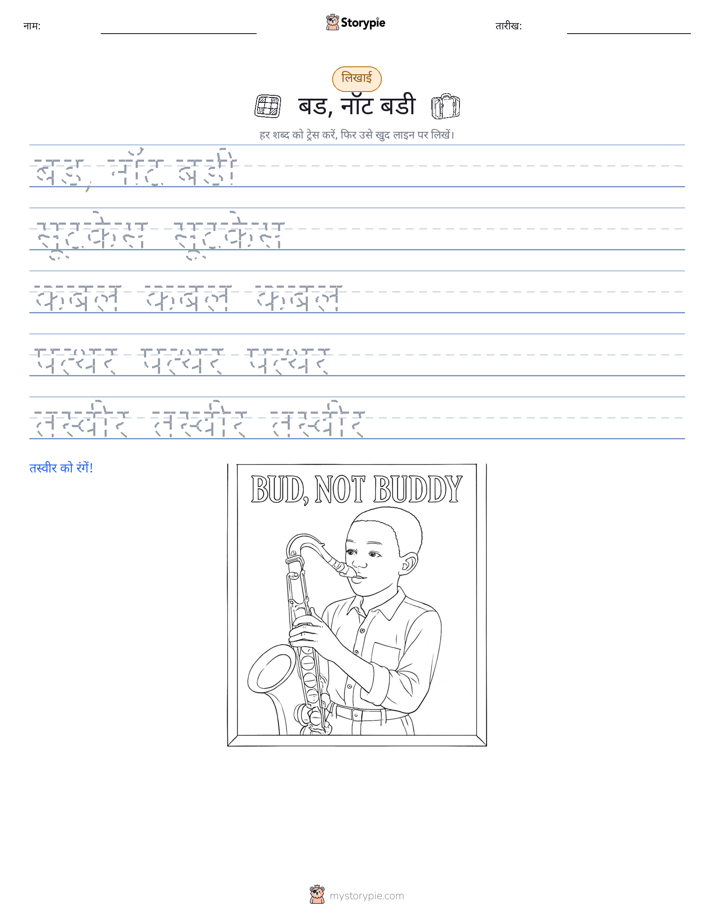 नाम:
Storypie
तारीख:
लिखाई
बड, नॉट बडी
हर शब्द को ट्रेस करें, फिर उसे खुद लाइन पर लिखें।
बड, नॉट बडी
सूटकेस सूटकेस
कंबल कंबल कंबल
पत्थर पत्थर पत्थर
तस्वीर तस्वीर तस्वीर
तस्वीर को रंगें!
BUD, NOT BUDDY
mystorypie.com